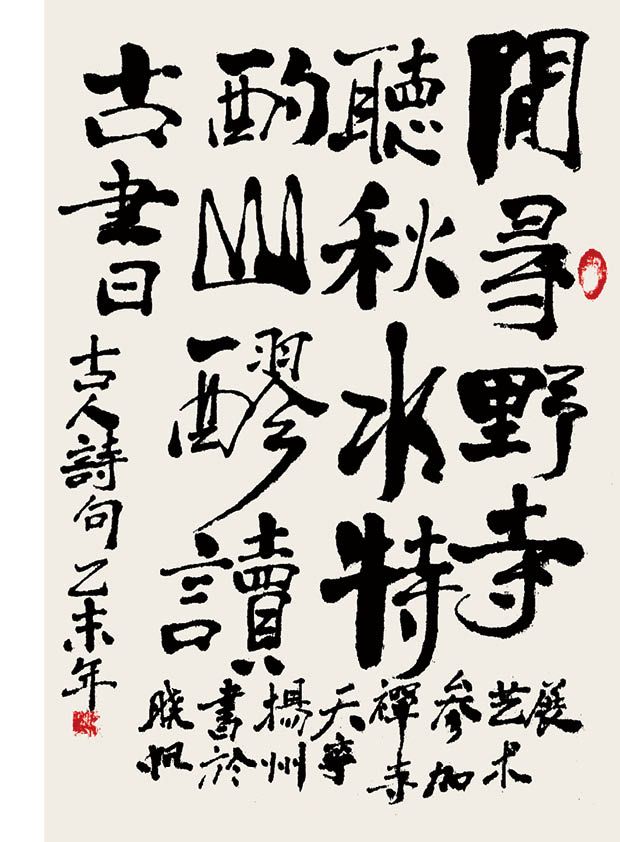 閒尋野寺
聽秋水特
酌山醪讀
古書日
古人詩句乙未年
晓帆
書於
揚州
天寧
禪寺
参加
艺术
展